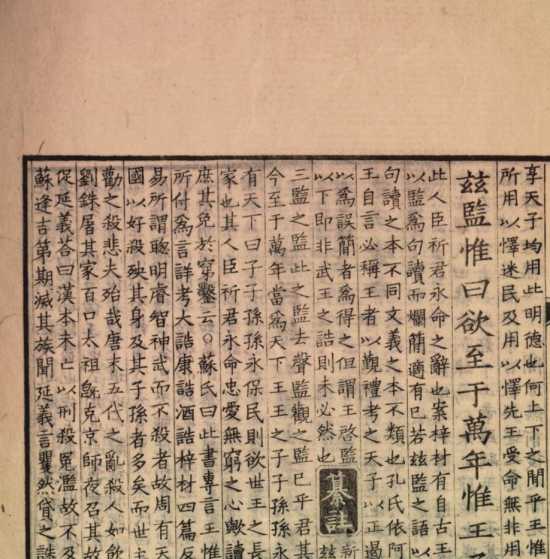 享天子均用此明德也何上下之間乎王惟
所用以懌迷民及用以懌先王受命無非用
兹監惟曰欲至于萬年惟王
此人臣祈君永命之辭也案梓材有自古王
以監爲句讀而爛簡適有已若兹監之語以
句讀之本不同文義之本不類也孔氏依阿
王自言必稱王者以觀禮考之天子以正遏
以爲誤簡者爲得之但謂王啓監
以下即非武王之誥則未必然也
纂註
新
兹
三監之監此之監去聲監觀之監已乎君其
今至于萬年當爲天下王王之子子孫孫永
有天下曰子子孫孫永保民則欲世王之長
家也其人臣祈君永命忠愛無窮之心歟讀
庶其免於穿鑿云○蘇氏曰此書專言王惟
所付爲言詳考大誥康誥酒誥梓材四篇反
易所謂聰明睿智神武而不殺者故周有天
國以好殺殃其身及其子孫者多矣而世主
勸之殺悲夫殆哉唐末五代之亂殺人如飲
劉銖屠其家百口太祖旣克京師夜召其故
促延義答曰漢本未亡以刑殺冤濫故不及
蘇逢吉第期滅其族聞延義言矍然貸之誅